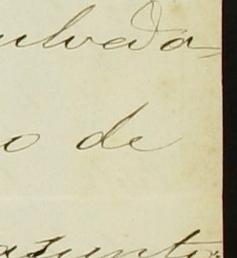 ulveda
o de
asunto